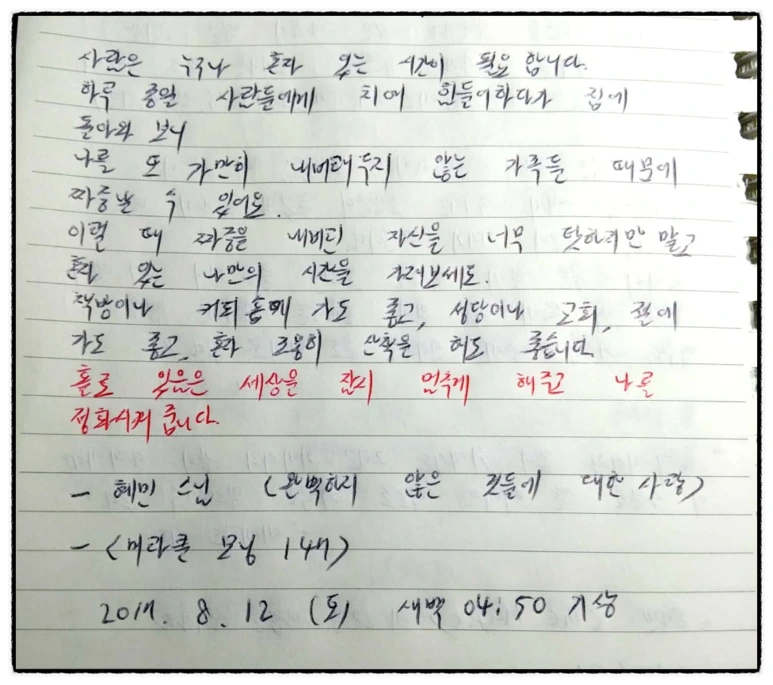 사람은 누구나 혼자 있는 시간이 필요 합니다.
하루 종일 사람들에게 치여 힘들어하다가 집에
돌아와 보니
나를 또 가만히 내버려두지 않는 가족들 때문에
짜증날 수 있어요.
이럴 때 짜증을 내버린 자신을 너무 탓하지만 말고
혼자 있는 나만의 시간을 가져보세요.
책방이나 커피숍에 가도 좋고, 성당이나 교회, 절에
가도 좋고, 혼자 조용히 산책을 해도 좋습니다.
홀로 있음은 세상을 잠시 멈추게 해주고 나를
정화시켜 줍니다.
- 혜민 스님 <완벽하지 않은 것들에 대한 사랑>
- <미라클 모닝 147>
2017. 8. 12 (토) 새벽 04:50 기상